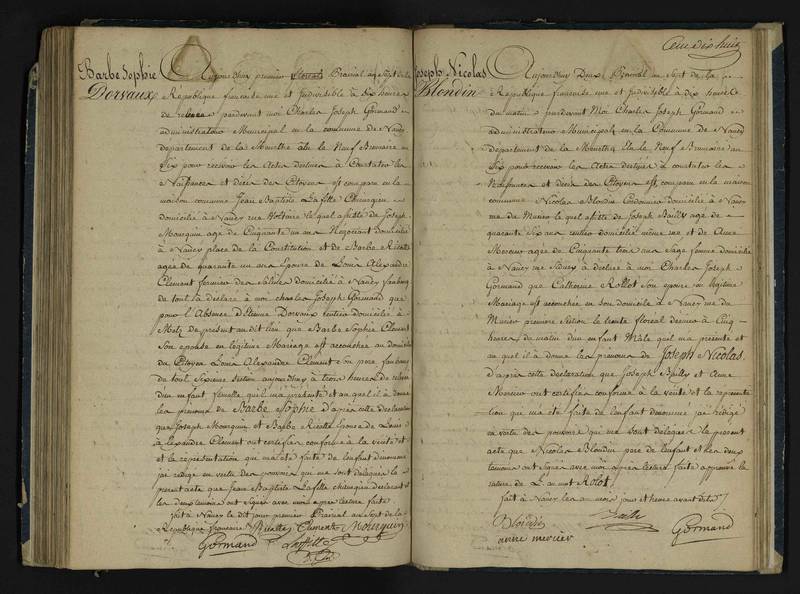 Barbe Sophie
Dorvaux
Aujourdhuy premier Prairial an Sept de la
Republique francaise une et Indivisible à Six heures
de relevee pardevant moi Charles Joseph Gormand
administrateur Municipal en la commune de Nancy
departement de la Meurthe élu le Neuf Brumaire an
Six pour recevoir les Actes destinés à Constater les
Naissances et décès des Citoyens est comparu en la
maison commune Jean Baptiste Lafitte Chirurgien
domicilié à Nancy rue Voltaire lequel assisté de Joseph
Mourquin agé de Cinquante un ans Negociant domicilié
à Nancy place de la Constitution et de Barbe Ricatte
agée de quarante un ans Epouse de Louis Alexandre
Clement fermier des Salines domicilié à Nancy faubourg
de Toul a declaré à moi Charles Joseph Gormand que
pour l'Absence d'Etienne Dorvaux rentier domicilié à
Metz de present audit lieu que Barbe Sophie Clement
Son epouse en légitime Mariage est accouchée au domicile
du Citoyen Louis Alexandre Clement son pere faubourg
de toul Sixieme Section aujourdhuy à trois heures de relevée
d'un enfant femelle quil ma présenté et auquel il a donné
les prenoms de Barbe Sophie d'après cette declaration
que Joseph Mourquin et Barbe Ricatte Epouse de Louis
Alexandre Clement ont certifiée conforme à la vérité et
et la representation qui ma été faite de lenfant denommé
jai redigé en vertu des pouvoirs qui me sont délégués le
present acte que Jean Baptiste Lafitte chirurgien declarant et
les deux temoins ont Signé avec moi apres lecture faite
fait à Nancy le dit jour premier Prairial an Sept de la
République francaise
Ricatte Clement Mourquin
Gormand Lafitte
Cent dix huit
Joseph Nicolas
Blondin
Aujourdhuy Deux Prairial an Sept de la
Republique francaise une et indivisible à dix heures
du matin pardevant Moi Charles Joseph Gormand
administrateur Municipal en la Commune de Nancy
departement de la Meurthe Elu le Neuf Brumaire an
Six pour recevoir les Actes destinés à constater les
Naissances et décès des Citoyens est comparu en la maison
commune Nicolas Blondin Cordonnier domicilié à Nancy
rue du Murier lequel assisté de Joseph Bailly agé de
quarante Six ans rentier domicilié même rue et de Anne
Mercier agée de Cinquante trois ans Sage femme domiciliée
à Nancy rue a déclaré à moi Charles Joseph
Gormand que Catherine Rollot Son epouse en légitime
Mariage est accouchée en Son domicile à Nancy rue du
Murier premiere Section le trente floreal dernier à Cinq
heures du matin dun enfant Mâle quil ma présenté et
auquel il a donné les prenoms de Joseph Nicolas,
d'après cette declaration que Joseph Bailly et Anne
Mercier ont certifiée conforme à la vérité et la representa
tion qui ma été faite de lenfant denommé jai redigé
en vertu des pouvoirs qui me sont délégués le present
acte que Nicolas Blondin pere de lenfant et les deux
temoins ont Signé avec moi apres lecture faite approuvé la
rature de mot Rolot.
fait à Nancy les an mois jour et heure avant dits
Blondin Bailly
anne mercier Gormand